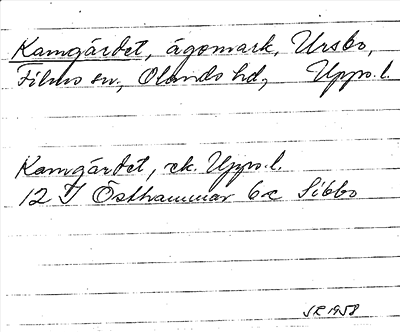 Kamgärdet, ägomark, Ursbo,
Films sn, Olands hd, Upps.l.
Kamgärdet, ek. Upps.l.
12 I Östhammar 6c Sibbo
SR 1958